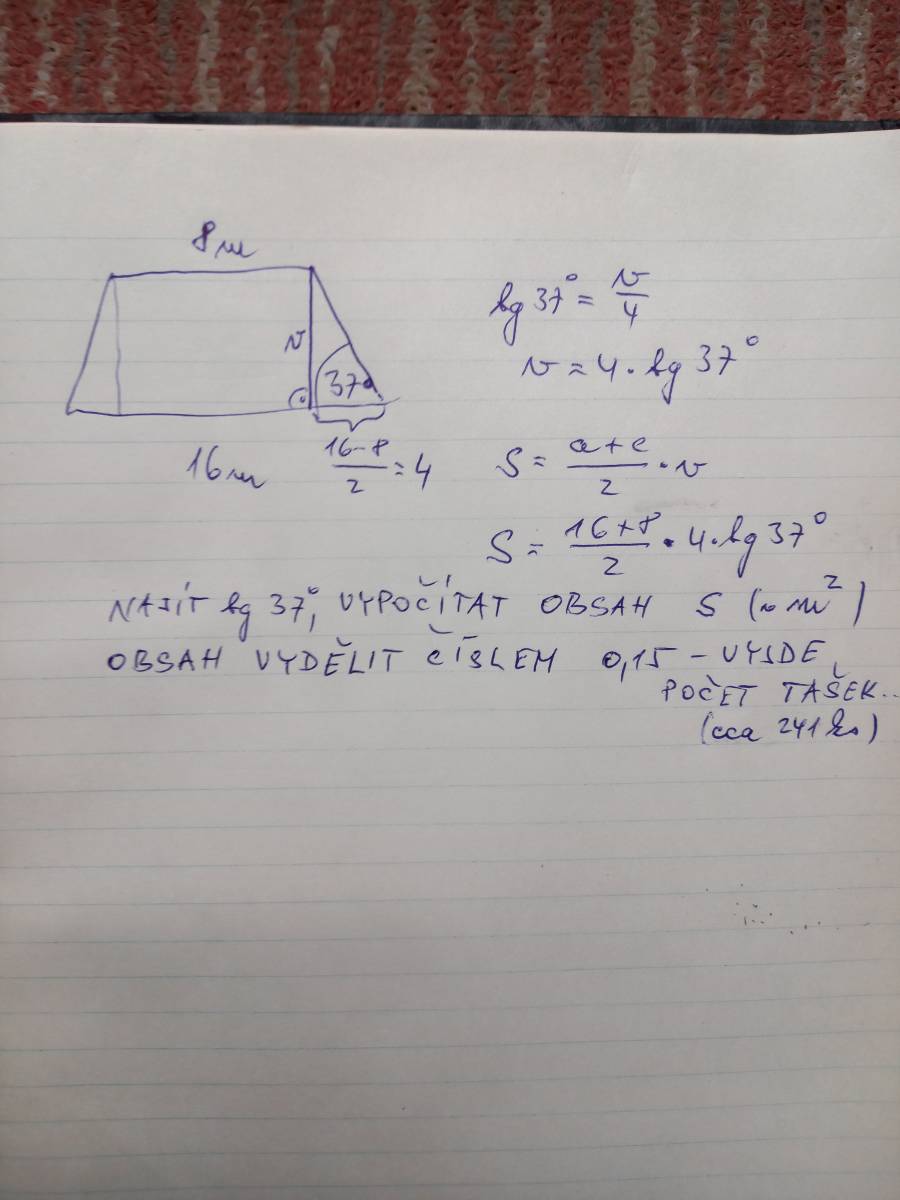 8m
tg 37° = v/4
v
37°
v = 4 · tg 37°
16m
(16-8)/2 = 4
S = (a+c)/2 · v
S = (16+8)/2 · 4 · tg 37°
NAJÍT tg 37°, VYPOČÍTAT OBSAH S (v m²)
OBSAH VYDĚLIT ČÍSLEM 0,15 - VYJDE
POČET TAŠEK...
(cca 241 ks)